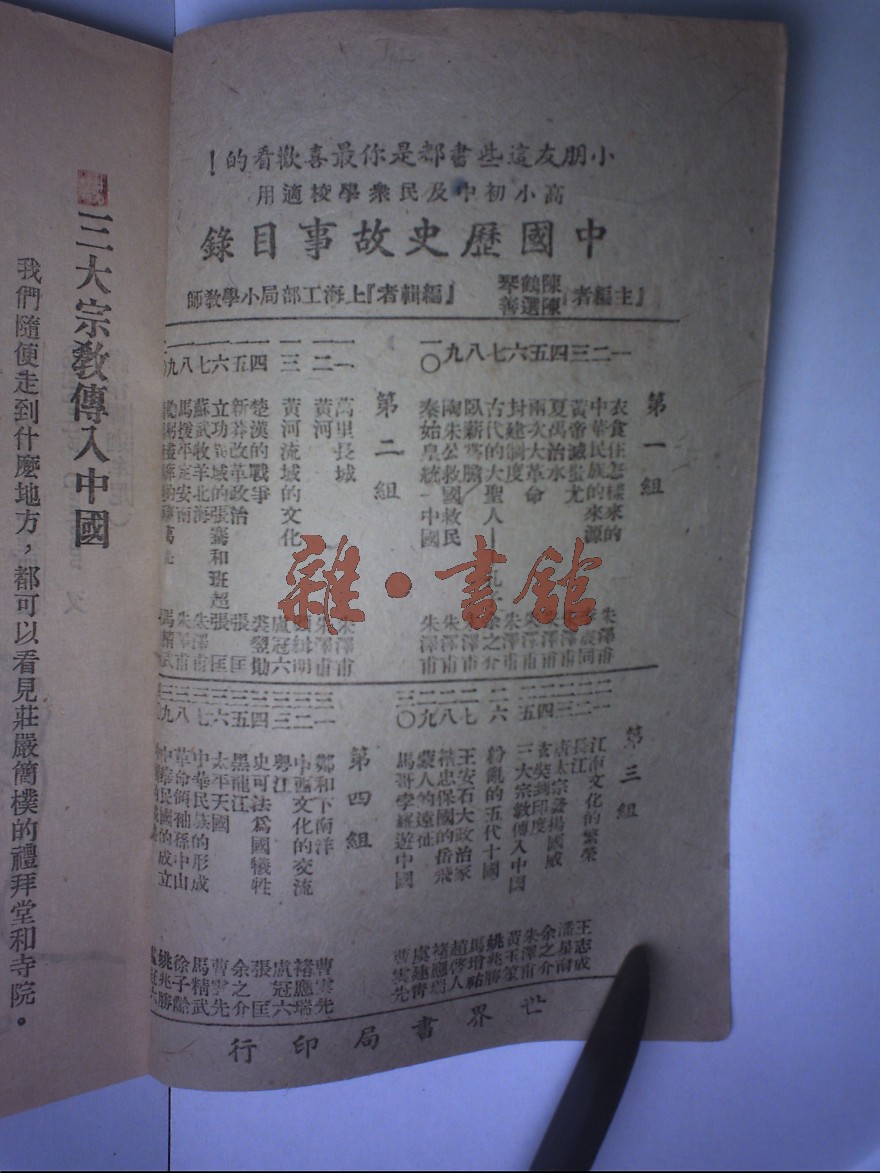 小朋友這些書都是你最喜歡看的！
高小初中及民衆學校適用
中國歷史故事目錄
『主編者』陳鶴琴 陳選善
『編輯者』上海工部局小學教師
第一組
一 衣食住怎樣來的 朱澤甫
二 中華民族的來源
三 黃帝滅蚩尤 朱澤甫
四 夏禹治水
五 兩次大革命 朱澤甫
六 封建制度 朱澤甫
七 古代的大聖人 余之介
八 臥薪嘗膽 朱澤甫
九 陶朱公救國救民 朱澤甫
一〇 秦始皇統一中國 朱澤甫
第二組
一一 萬里長城 朱澤甫
一二 黃河 朱澤甫
一三 黃河流域的文化 盧冠六
一四 楚漢的戰爭 裘翌勛
一五 新莽改革政治 張匡
一六 立功異域的張騫和班超 張匡
一七 蘇武牧羊北海 朱澤甫
一八 馬援平定安南 朱澤甫
一九 馬精武
第三組
二一 江南文化的繁榮 王志成
二二 長江 潘星南
二三 唐太宗發揚國威 余之介
二四 玄奘到印度 朱澤甫
二五 三大宗教傳入中國 黃玉笙
二六 紛亂的五代十國 姚兆勝
二七 王安石大政治家 馬增祐
二八 精忠保國的岳飛 趙啓人
二九 蒙人的遠征 褚應瑞
三〇 馬哥孛羅遊中國 曹雲先
第四組
三一 鄭和下南洋 曹雲先
三二 中西文化的交流 褚應瑞
三三 粵江 盧冠六
三四 史可法爲國犧牲 張匡
三五 黑龍江 余之介
三六 太平天國 曹雲先
三七 中華民族的形成 馬精武
三八 革命領袖孫中山 徐子餘
三九 中華民國的成立 姚兆勝
世界書局印行
三大宗教傳入中國
我們隨便走到什麼地方，都可以看見莊嚴簡樸的禮拜堂和寺院。
雜·書館